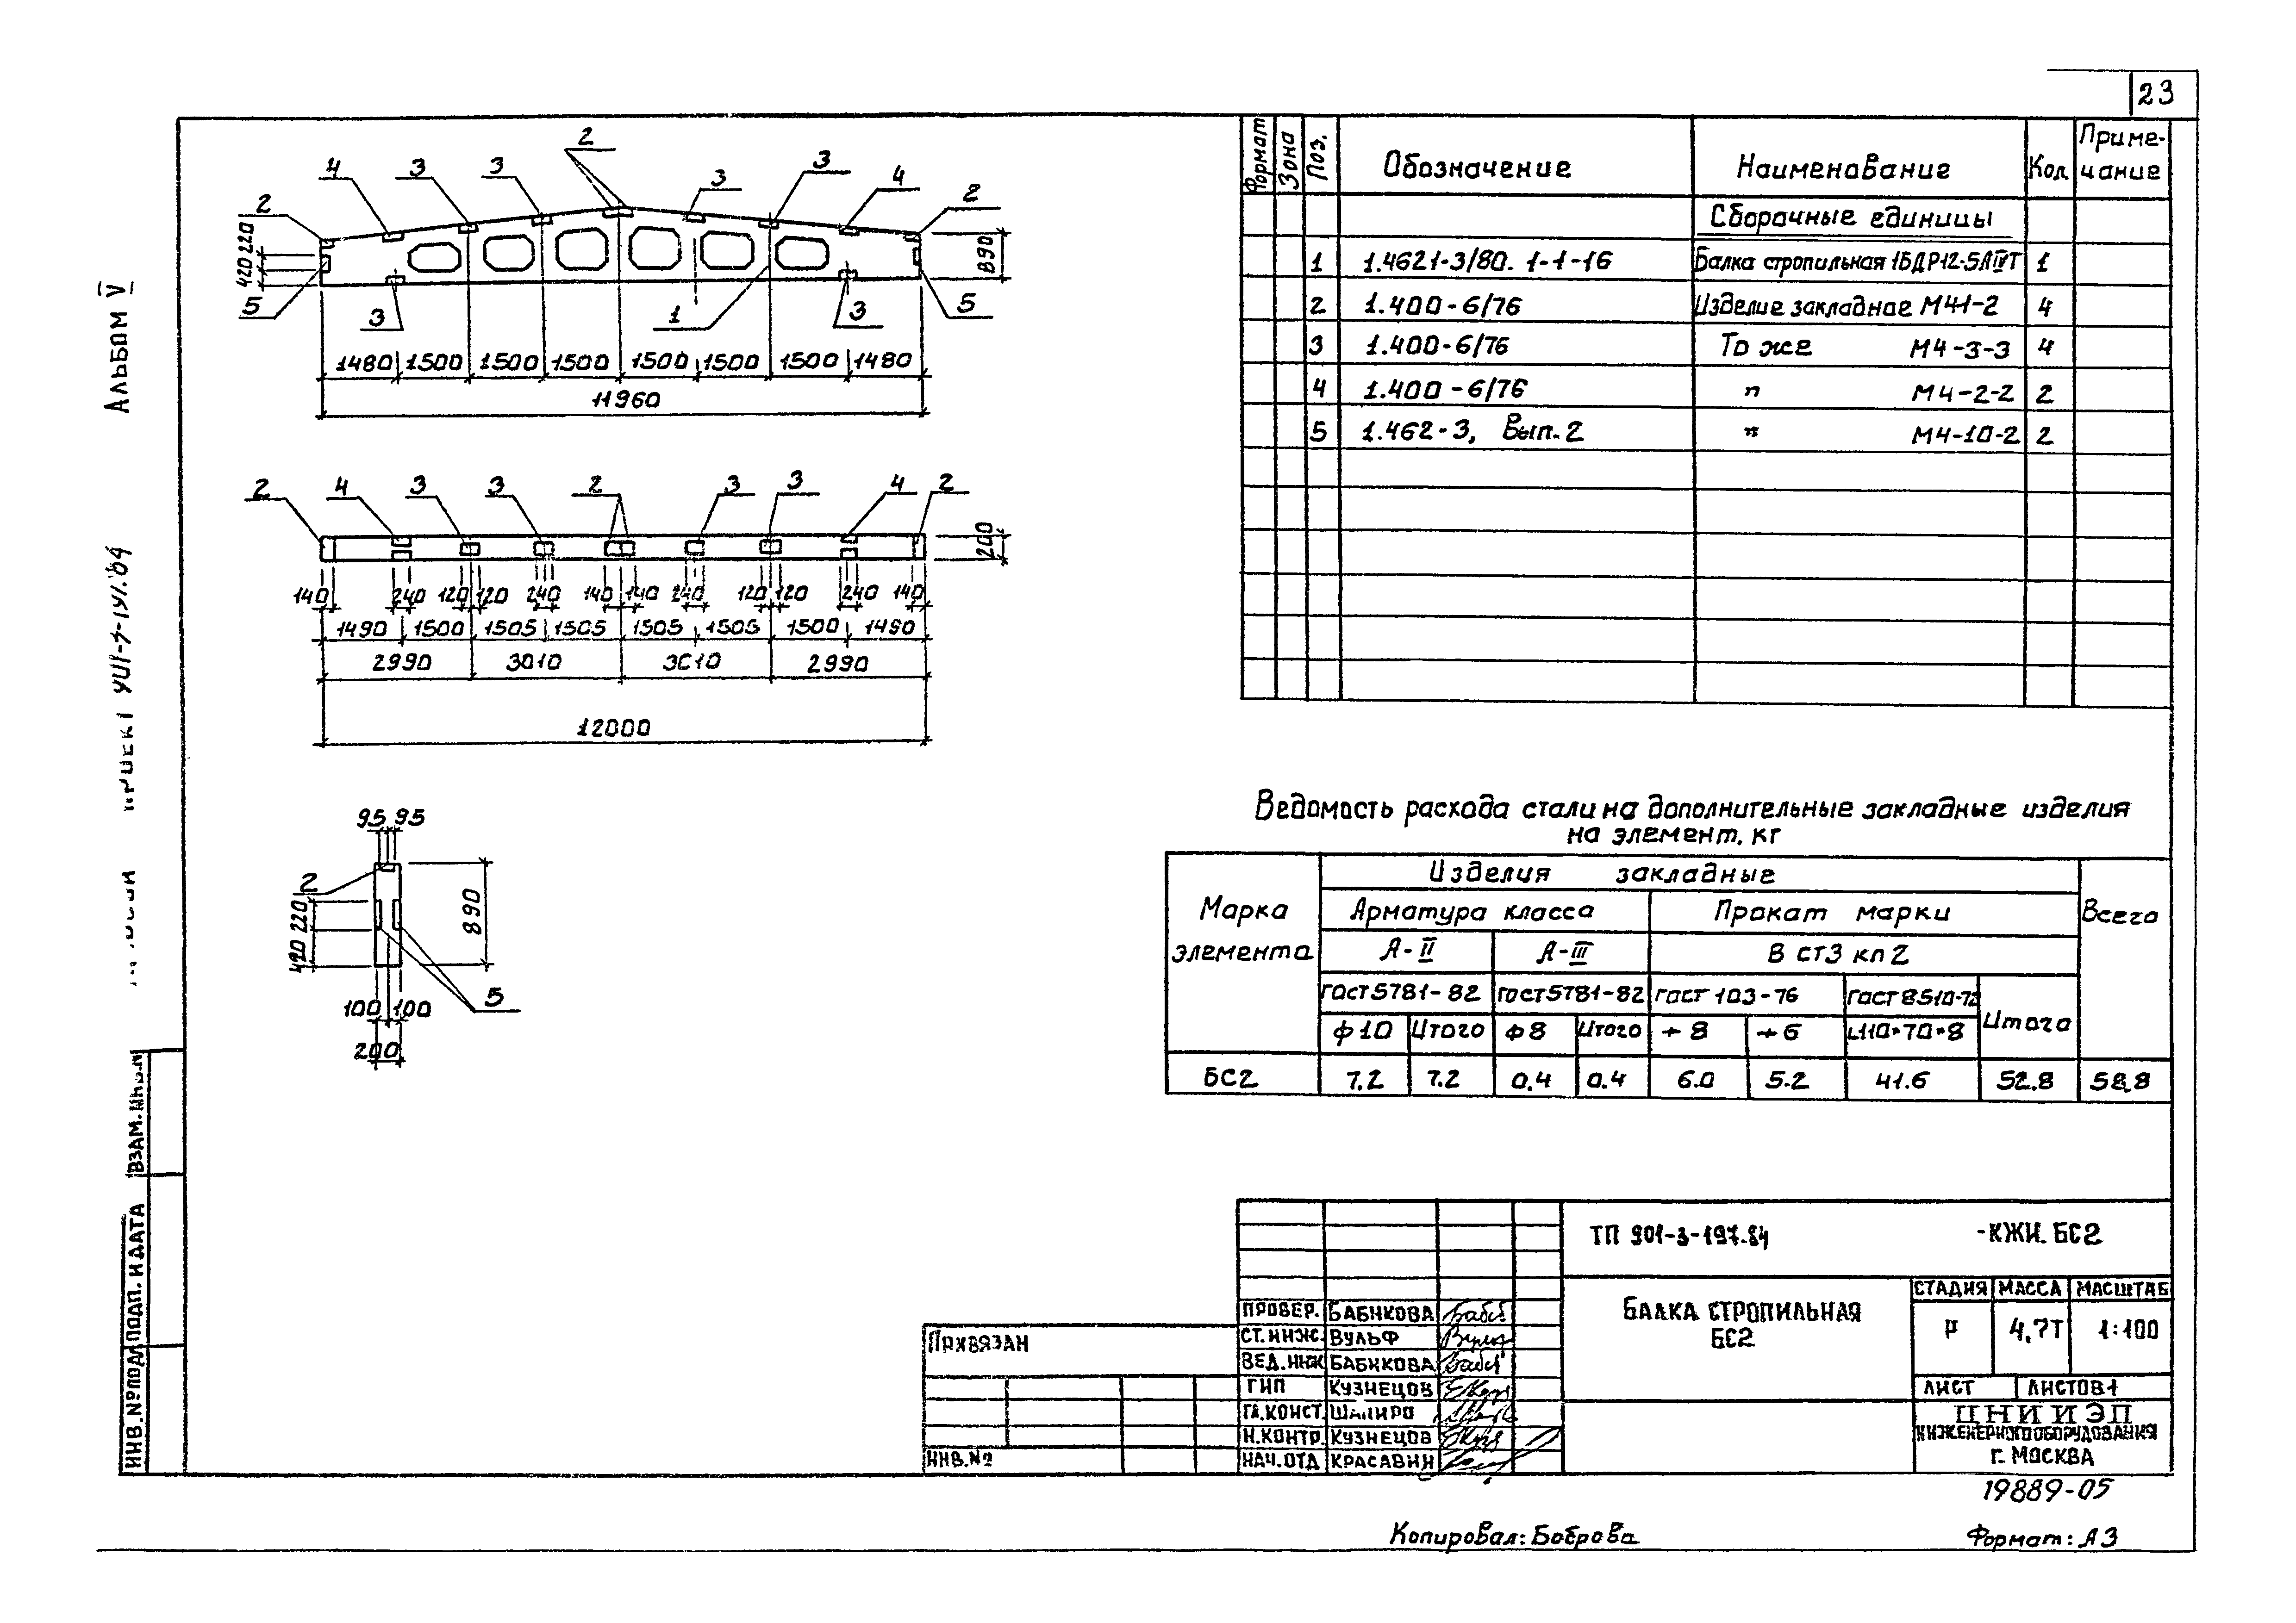 23
Альбом V
2
4 3 3 3 3 4
2 2
220
420
890
5 3 1 3 5
1480 1500 1500 1500 1500 1500 1500 1480
11960
2 4 3 3 2 3 3 4 2
200
140 240 120 120 240 140 140 240 120 120 240 140
1490 1500 1505 1505 1505 1505 1500 1490
2990 3010 3010 2990
12000
95 95
2
220
420
890
5
100 100
200
Формат Зона Поз. Обозначение Наименование Кол. Приме-
чание
Сборочные единицы
1 1.462 1-3/80. 1-1-16 Балка стропильная 1БДР12-5АIVТ 1
2 1.400-6/76 Изделие закладное М41-2 4
3 1.400-6/76 То же М4-3-3 4
4 1.400-6/76 " М4-2-2 2
5 1.462-3, Вып.2 " М4-10-2 2
Ведомость расхода стали на дополнительные закладные изделия
на элемент, кг
Марка
элемента
Изделия закладные
Всего
Арматура класса Прокат марки
А-II А-III В ст3 кп2
ГОСТ5781-82 ГОСТ5781-82 ГОСТ 103-76 ГОСТ8510-72 Итого
ф10 Итого ф8 Итого -8 -6 L110×70×8
БС2 7.2 7.2 0.4 0.4 6.0 5.2 41.6 52.8 58.8
ТП 901-3-197.84 -КЖИ.БС2
БАЛКА СТРОПИЛЬНАЯ
БС2
СТАДИЯ МАССА МАСШТАБ
Р 4,7Т 1:100
ЛИСТ ЛИСТОВ 1
ЦНИИЭП
ИНЖЕНЕРНОГО ОБОРУДОВАНИЯ
Г. МОСКВА
ПРОВЕР. БАБИКОВА
СТ.ИНЖ. ВУЛЬФ
ВЕД.ИНЖ БАБИКОВА
ГИП КУЗНЕЦОВ
ГЛ.КОНСТ. ШАПИРО
Н.КОНТР. КУЗНЕЦОВ
НАЧ.ОТД КРАСАВИН
ПРИВЯЗАН
ИНВ.№
ИНВ.№ПОДЛ ПОДП. И ДАТА ВЗАМ.ИНВ.№
19889-05
Копировал: Боброва Формат: А3